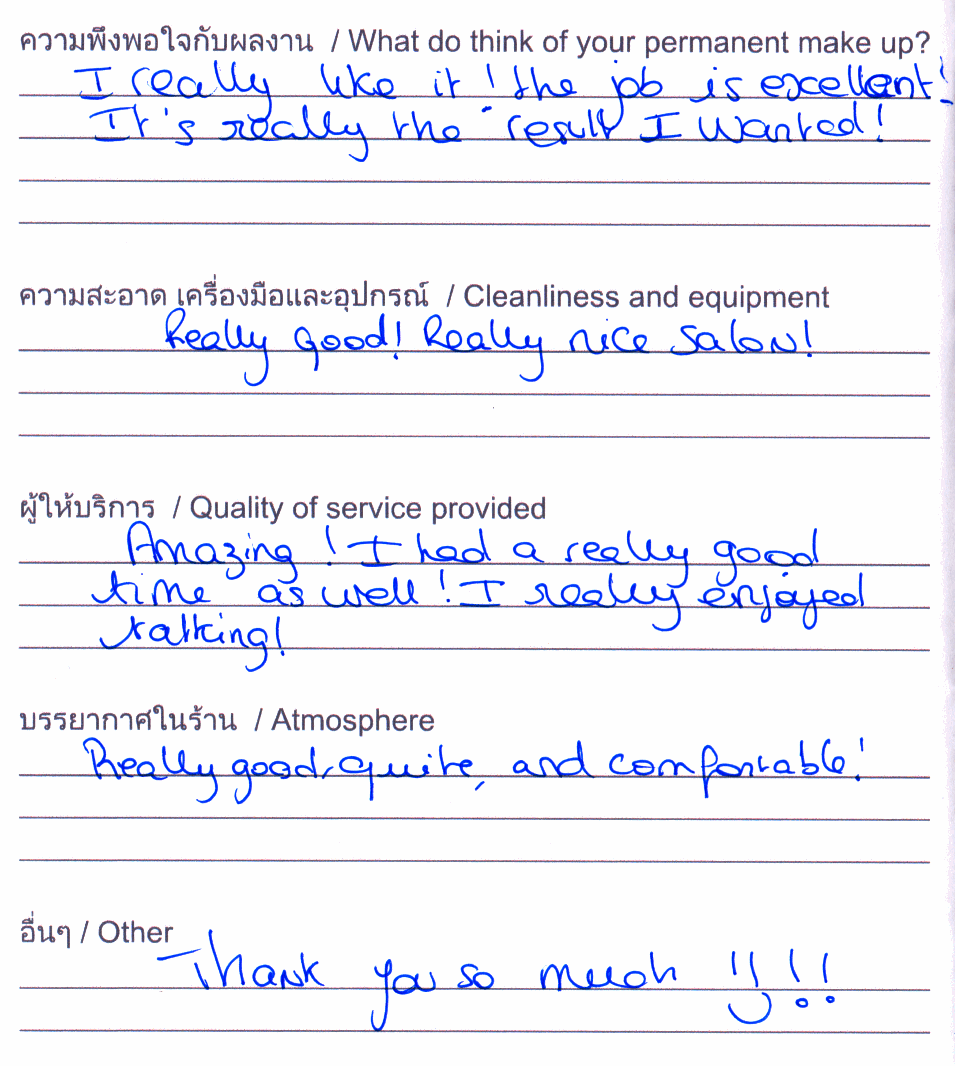 ความพึงพอใจกับผลงาน / What do think of your permanent make up?
I really like it! the job is excellent!
It's really the result I wanted!
ความสะอาด เครื่องมือและอุปกรณ์ / Cleanliness and equipment
Really good! Really nice salon!
ผู้ให้บริการ / Quality of service provided
Amazing! I had a really good
time as well! I really enjoyed
talking!
บรรยากาศในร้าน / Atmosphere
Really good, quite, and comfortable!
อื่นๆ / Other
Thank you so much !!!!